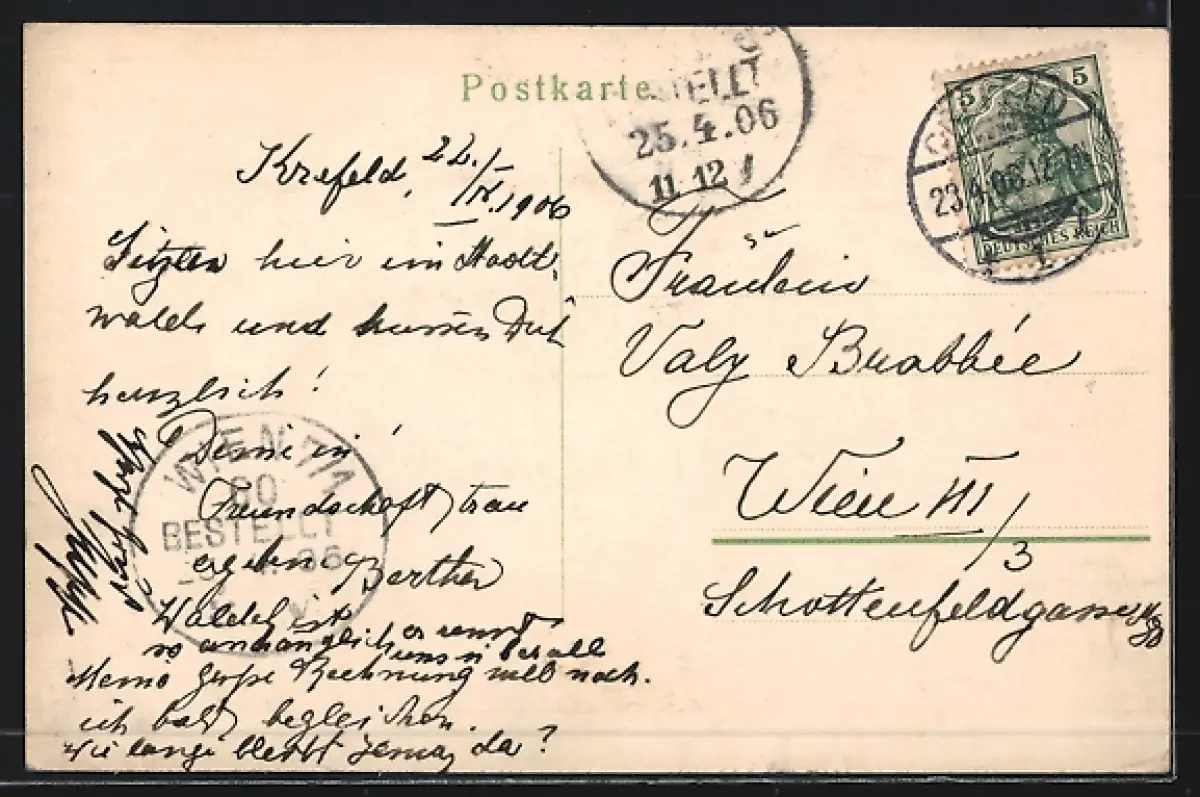 Postkarte
BESTELLT
25.4.06
11 12
5 5
CREFELD
23.4.06.12
DEUTSCHES REICH
Krefeld, 22./IV.1906
Sitzen hier im Stadt-
walde und küssen Dich
herzlich!
Deine in
Freundschaft treu
ergebene Berthe
Waldel ist
so anhänglich er rennt
uns überall nach.
Meine große Rechnung will
ich bald begleichen.
wie lange bleibt da?
WIEN 7/1
60
BESTELLT
Fräulein
Valy Brabbée
Wien III/3
Schottenfeldgasse